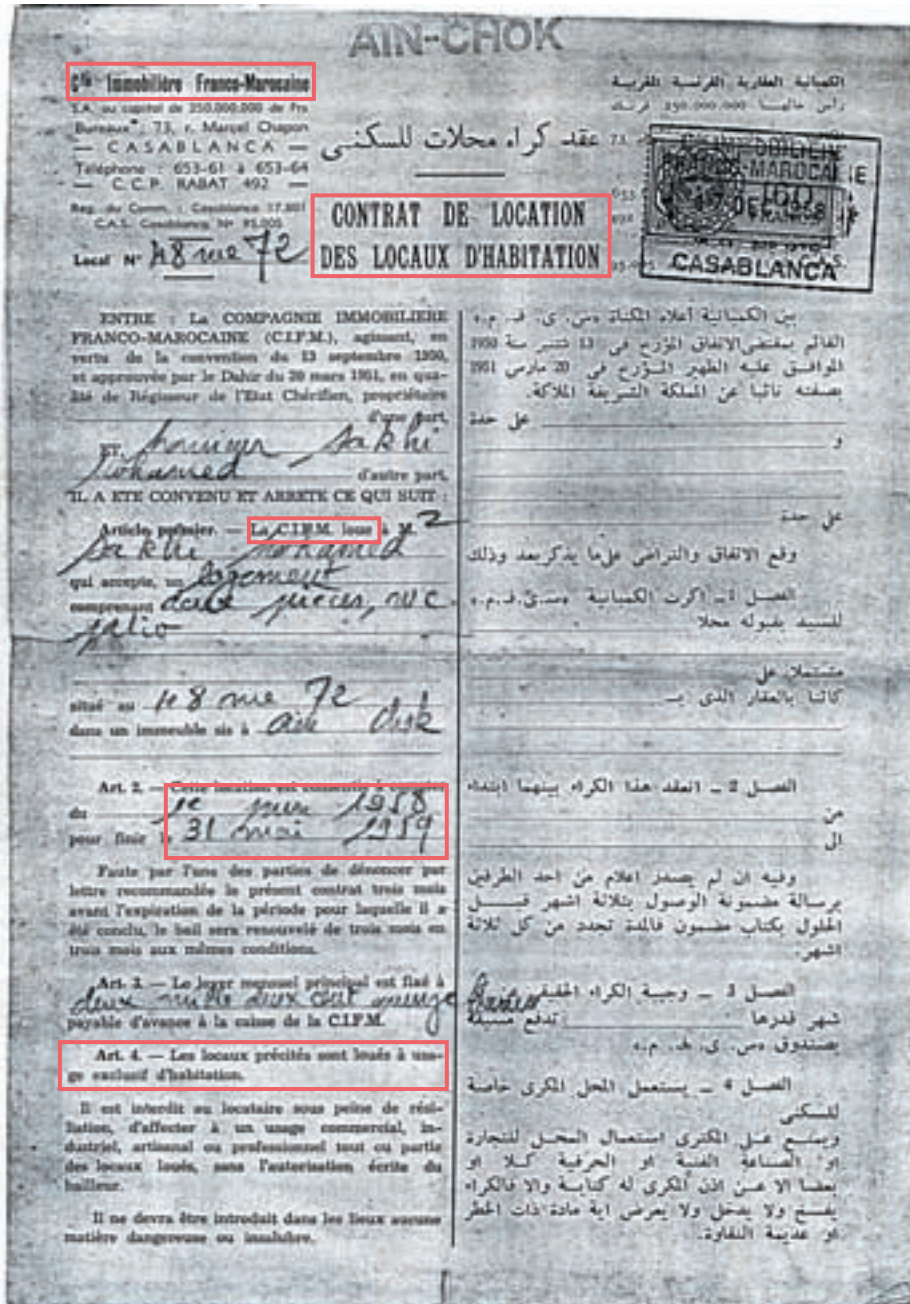 AIN-CHOK
Cie Immobilière Franco-Marocaine
S.A. au capital de 250.000.000 de Frs
Bureaux : 73, r. Marcel Chapon
— CASABLANCA —
Téléphone : 653-61 à 653-64
— C.C.P. RABAT 492 —
Reg. du Comm. : Casablanca 17.801
C.A.S. Casablanca N° 95.005
Local N° 48 rue 72
الكمبانية العقارية الفرنسية المغربية
رأس مالها 250.000.000 فرنك
عقد كراء محلات للسكنى
CONTRAT DE LOCATION
DES LOCAUX D'HABITATION
IMMOBILIERE
FRANCO-MAROCAINE
CASABLANCA
ENTRE : La COMPAGNIE IMMOBILIERE
FRANCO-MAROCAINE (C.I.F.M.), agissant, en
vertu de la convention du 13 septembre 1950,
et approuvée par le Dahir du 20 mars 1951, en qua-
lité de Régisseur de l'Etat Chérifien, propriétaire
d'une part,
ET Sakhi
Mohamed d'autre part,
IL A ETE CONVENU ET ARRETE CE QUI SUIT :
Article premier. — La C.I.F.M. loue à
Sakhi Mohamed
qui accepte, un logement
comprenant deux pièces, w c
patio
situé au 48 rue 72
dans un immeuble sis à ain chok
Art. 2. — Cette location est consentie à compter
du 1e juin 1958
pour finir le 31 mai 1959
Faute par l'une des parties de dénoncer par
lettre recommandée le présent contrat trois mois
avant l'expiration de la période pour laquelle il a
été conclu, le bail sera renouvelé de trois mois en
trois mois aux mêmes conditions.
Art. 3. — Le loyer mensuel principal est fixé à
deux mille deux cent
payable d'avance à la caisse de la C.I.F.M.
Art. 4. — Les locaux précités sont loués à usa-
ge exclusif d'habitation.
Il est interdit au locataire sous peine de rési-
liation, d'affecter à un usage commercial, in-
dustriel, artisanal ou professionnel tout ou partie
des locaux loués, sans l'autorisation écrite du
bailleur.
Il ne devra être introduit dans les lieux aucune
matière dangereuse ou insalubre.
بين الكمبانية أعلاه المكناة «س. ى. ف. م.»
القائم بمقتضى الاتفاق المؤرخ في 13 شتنبر سنة 1950
الموافق عليه الظهير المؤرخ في 20 مارس 1951
بصفته نائبا عن المملكة الشريفة الملاكة.
على حدة
و
على حدة
وقع الاتفاق والتراضى على ما يذكر بعد وذلك
الفصل 1 – اكرت الكمبانية «س.ى.ف.م.»
للسيد بقوله محلا
مشتملا على
كائنا بالعقار الذى بـ
الفصل 2 – انعقد هذا الكراء بينهما ابتداء
من
الى
وفيه ان لم يصدر اعلام من احد الطرفين
برسالة مضمونة الوصول بثلاثة اشهر قبل
الحلول بكتاب مضمون فالمدة تجدد من كل ثلاثة
اشهر.
الفصل 3 – وجيبة الكراء الحقيقى
شهر قدرها تدفع مسبقة
بصندوق «س. ى. ف. م.»
الفصل 4 – يستعمل المحل المكرى خاصة
للسكنى
ويمنع على المكترى استعمال المحل للتجارة
او الصناعة الفنية او الحرفية كلا او
بعضا الا عن اذن المكرى له كتابة والا فالكراء
يفسخ ولا يدخل ولا يعرض اية مادة ذات الخطر
او عديمة النقاوة.